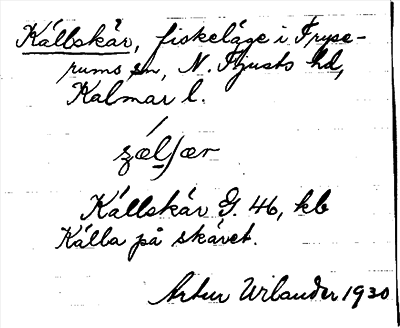 Källskär, fiskeläge i Fryse-
rums sn, N. Tjusts hd,
Kalmar l.
Källskär G. 46, kb
Källa på skäret.
Artur Wilander 1930